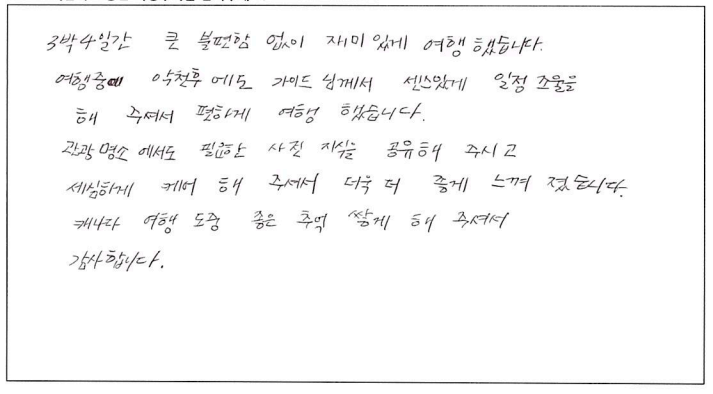 3박4일간 큰 불편함 없이 재미있게 여행했습니다.
여행중에 악천후에도 가이드님께서 센스있게 일정 조율을
해 주셔서 편하게 여행 했습니다.
관광명소에서도 필요한 사전 지식을 공유해 주시고
세심하게 케어 해 주셔서 더욱 더 좋게 느껴졌습니다.
캐나다 여행 도중 좋은 추억 쌓게 해 주셔서
감사합니다.